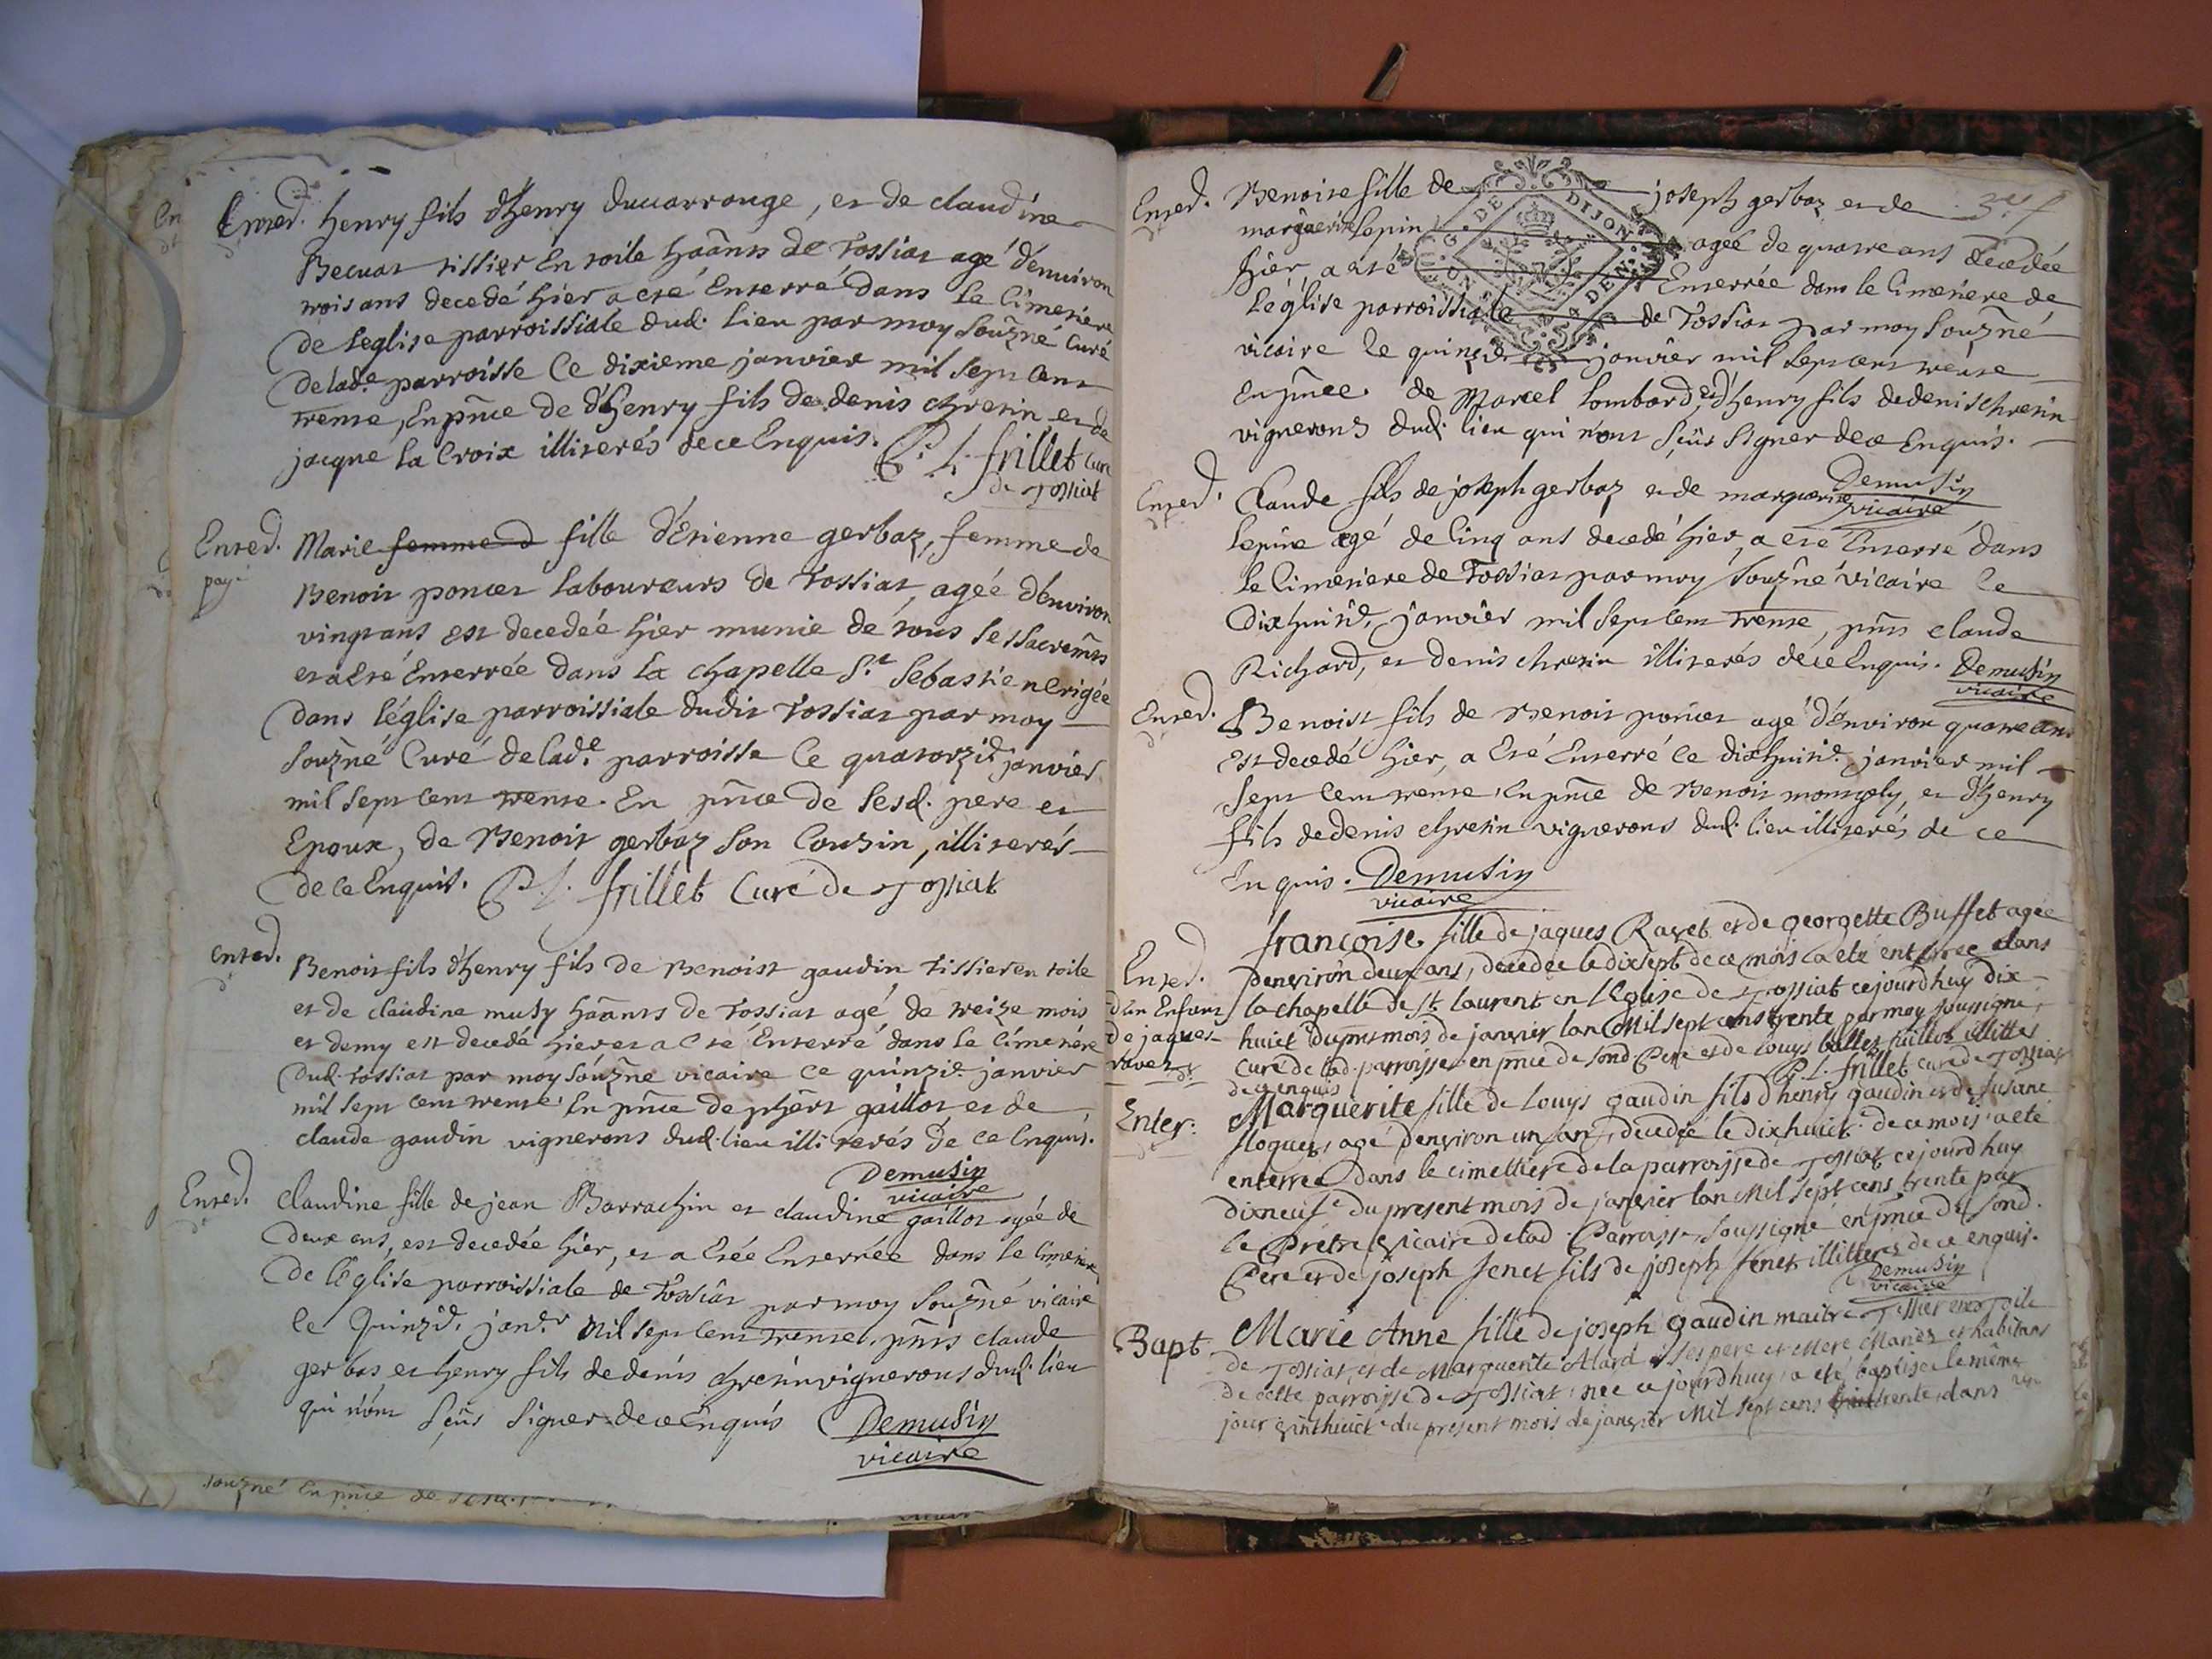 Enterd. henry fils d'henry ducarrouge, et de claudine
Becuat tissier en toile haânts de Tossiat agé d'environ
trois ans decedé hier a eté Enterré dans le Cimetiere
de l'eglise parroissiale dud. lieu par moy souz̃né Curé
de lade parroisse le dixieme janvier mil sept cent
trente, En pñce de d'henry fils de denis chretin et de
jacque la Croix illiterés de ce Enquis. P. L. frillet Curé
de Tossiat
Enterd. Marie femme d fille d'Etienne gerbaz, femme de
payé
Benoit poncet laboureurs de Tossiat, agée d'environ
vingt ans est decedée hier munie de tous les sacremts
et a eté Enterrée dans la chapelle St Sebastien Erigée
dans l'église parroissiale dudit Tossiat par moy
souz̃né Curé de lade parroisse le quatorzie janvier
mil sept cent trente. En pñce de sesd. pere et
Epoux, de Benoit gerbaz son Cousin, illiterés
de ce Enquis. P. L. frillet Curé de Tossiat
Enterd. Benoit fils d'henry fils de Benoist gaudin tissier en toile
et de claudine muty haânts de Tossiat agé de treize mois
et demy est decedé hier et a eté Enterré dans le Cimetiére
dud. Tossiat par moy souz̃né vicaire ce quinzie janvier
mil sept cent trente. En pñce de phêrt gaillot et de
claude gaudin vignerons dud. lieu illiterés de ce Enquis.
Demusin
vicaire
Enterd. Claudine fille de jean Barrachin et claudine gaillot agée de
deux ans, est decedée hier, et a etée Enterrée dans le Cimetiere
de l'église parroissiale de Tossiat par moy souz̃né vicaire
le Quinzie. janer mil sept cent trente. pñts claude
gerbas et henry fils de denis chretin vignerons dud. lieu
qui n'ont sçûs signer de ce Enquis Demusin
vicaire
souz̃né En pñce de
Enterd. Benoite fille de joseph gerbaz et de
marguerite lepin agée de quatre ans decedée
hier, a eté Enterrée dans le Cimetiere de
l'église parroissiale de Tossiat par moy souz̃né
vicaire le quinzie janvier mil sept cent trente
En pñce de Marcel lombard et d'henry fils de denis chretin
vignerons dud. lieu qui n'ont sçûs signer de ce Enquis.
Demusin
vicaire
Enterd. Claude fils de joseph gerbaz et de marguerite
lepine agé de Cinq ans decedé hier, a eté Enterré dans
le Cimetiere de Tossiat par moy souz̃né vicaire le
dixhuitie. janvier mil sept cent trente, pñts claude
Richard, et denis chretin illiterés de ce Enquis. Demusin
vicaire
Enterd. Benoist fils de Benoit poncet agé d'Environ quatre ans
est decedé hier, a Eté Enterré le dixhuitie. janvier mil
sept cent trente, En pñce de Benoit montgely, et d'henry
fils de denis chretin vignerons dud. lieu illiterés de ce
Enquis. Demusin
vicaire
Enterd.
d'un Enfant
de jaques
ravet
françoise fille de jaques Ravet et de georgette Buffet agée
d'environ deux ans, decedée le dixsept de ce mois a eté enterrée dans
la chapelle de St. laurent en l'Eglise de Tossiat cejourdhuy dix
huict du pñt mois de janvier lan Mil sept cens trente par moy soussigné
curé de lad. parroisse en pñce de sond. Pere et de louys illittes
de ce enquis P. L. frillet curé de Tossiat
Enter. Marguerite fille de louys gaudin fils d'henry gaudin et de susane
floquet, agé d'environ un an, decedée le dixhuict de ce mois a eté
enterrée dans le cimettiere de la parroisse de Tossiat cejourdhuy
dixneufe du present mois de janvier lan Mil sept cens trente par
le Prétre vicaire de lad. Parroisse soussigné en pñce de sond.
Pére et de joseph fenet fils de joseph fenet illitteres de ce enquis.
Demusin
vicaire
Bapt. Marie Anne fille de joseph gaudin maitre Tissier en Toile
de Tossiat, et de Marguerite Alard ses pere et Mere Mariés et habitans
de cette parroisse de Tossiat, née cejourdhuy, a eté baptisée le même
jour vinthuicte du present mois de janvier Mil sept cens trente, dans